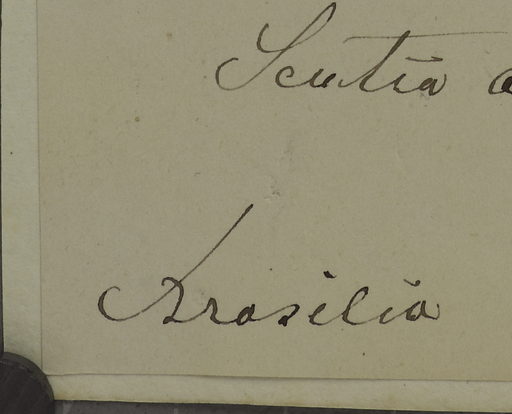 Scutia a
Brasilia